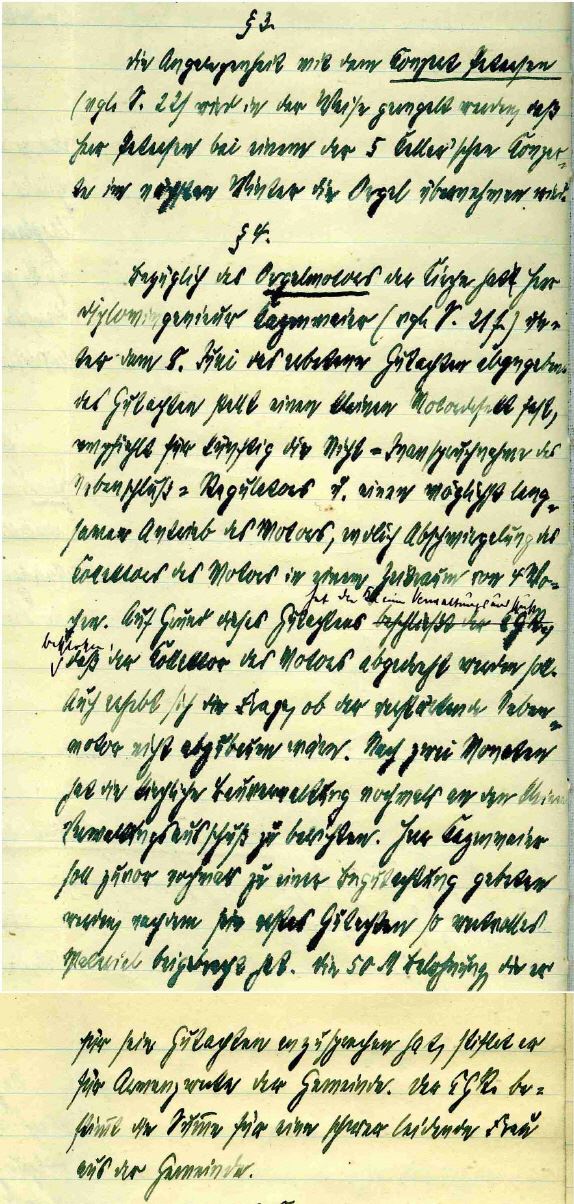 § 3.
Die Angelegenheit mit dem Konzert Petersen
(vgl. S. 22) wird in der Weise geregelt werden, daß
Herr Petersen bei einem der 5 Keller'schen Konzer-
te im nächsten Winter die Orgel übernehmen wird.
§ 4.
Bezüglich des Orgelmotors der Kirche hat Herr
Diplomingenieur Katzenmeier (vgl. S. 21 f.) un-
ter dem 8. Juni das erbetene Gutachten abgegeben.
Das Gutachten stellt einen kleinen Motordefekt fest,
empfiehlt für künftig die Nicht-Inanspruchnahme des
Nebenschluß-Regulators u. einen möglichst lang-
samen Antrieb des Motors, endlich Abschmirgelung des
Kollektors des Motors in einem Zeitraum von 4 Wo-
hat der Kleine Verwaltungsausschuß
chen. Auf Grund dieses Gutachtens beschließt der KGR,
beschlossen,
daß der Kollektor des Motors abgedreht werden soll.
Auch erhebt sich die Frage, ob der
motor nicht abzubauen wäre. Nach zwei Monaten
hat die kirchliche Bauverwaltung nochmals an den Kleinen
Verwaltungsausschuß zu berichten. Herr Katzenmeier
soll zuvor nochmals zu einer Begutachtung gebeten
werden, nachdem sein erstes Gutachten so wertvolles
Material beigebracht hat. Die 50 M Belohnung, die er
für sein Gutachten anzusprechen hat, stiftet er
für Armenzwecke der Gemeinde. Der KGR. be-
stimmt die Summe für eine schwer leidende Frau
aus der Gemeinde.